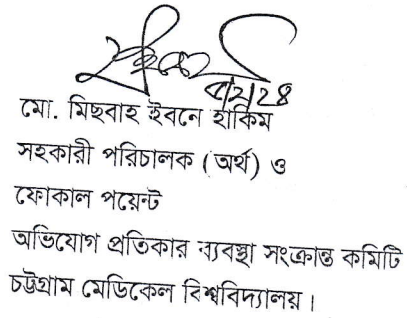 মো. মিছবাহ ইবনে হাকিম
সহকারী পরিচালক (অর্থ) ও
ফোকাল পয়েন্ট
অভিযোগ প্রতিকার ব্যবস্থা সংক্রান্ত কমিটি
চট্টগ্রাম মেডিকেল বিশ্ববিদ্যালয়।